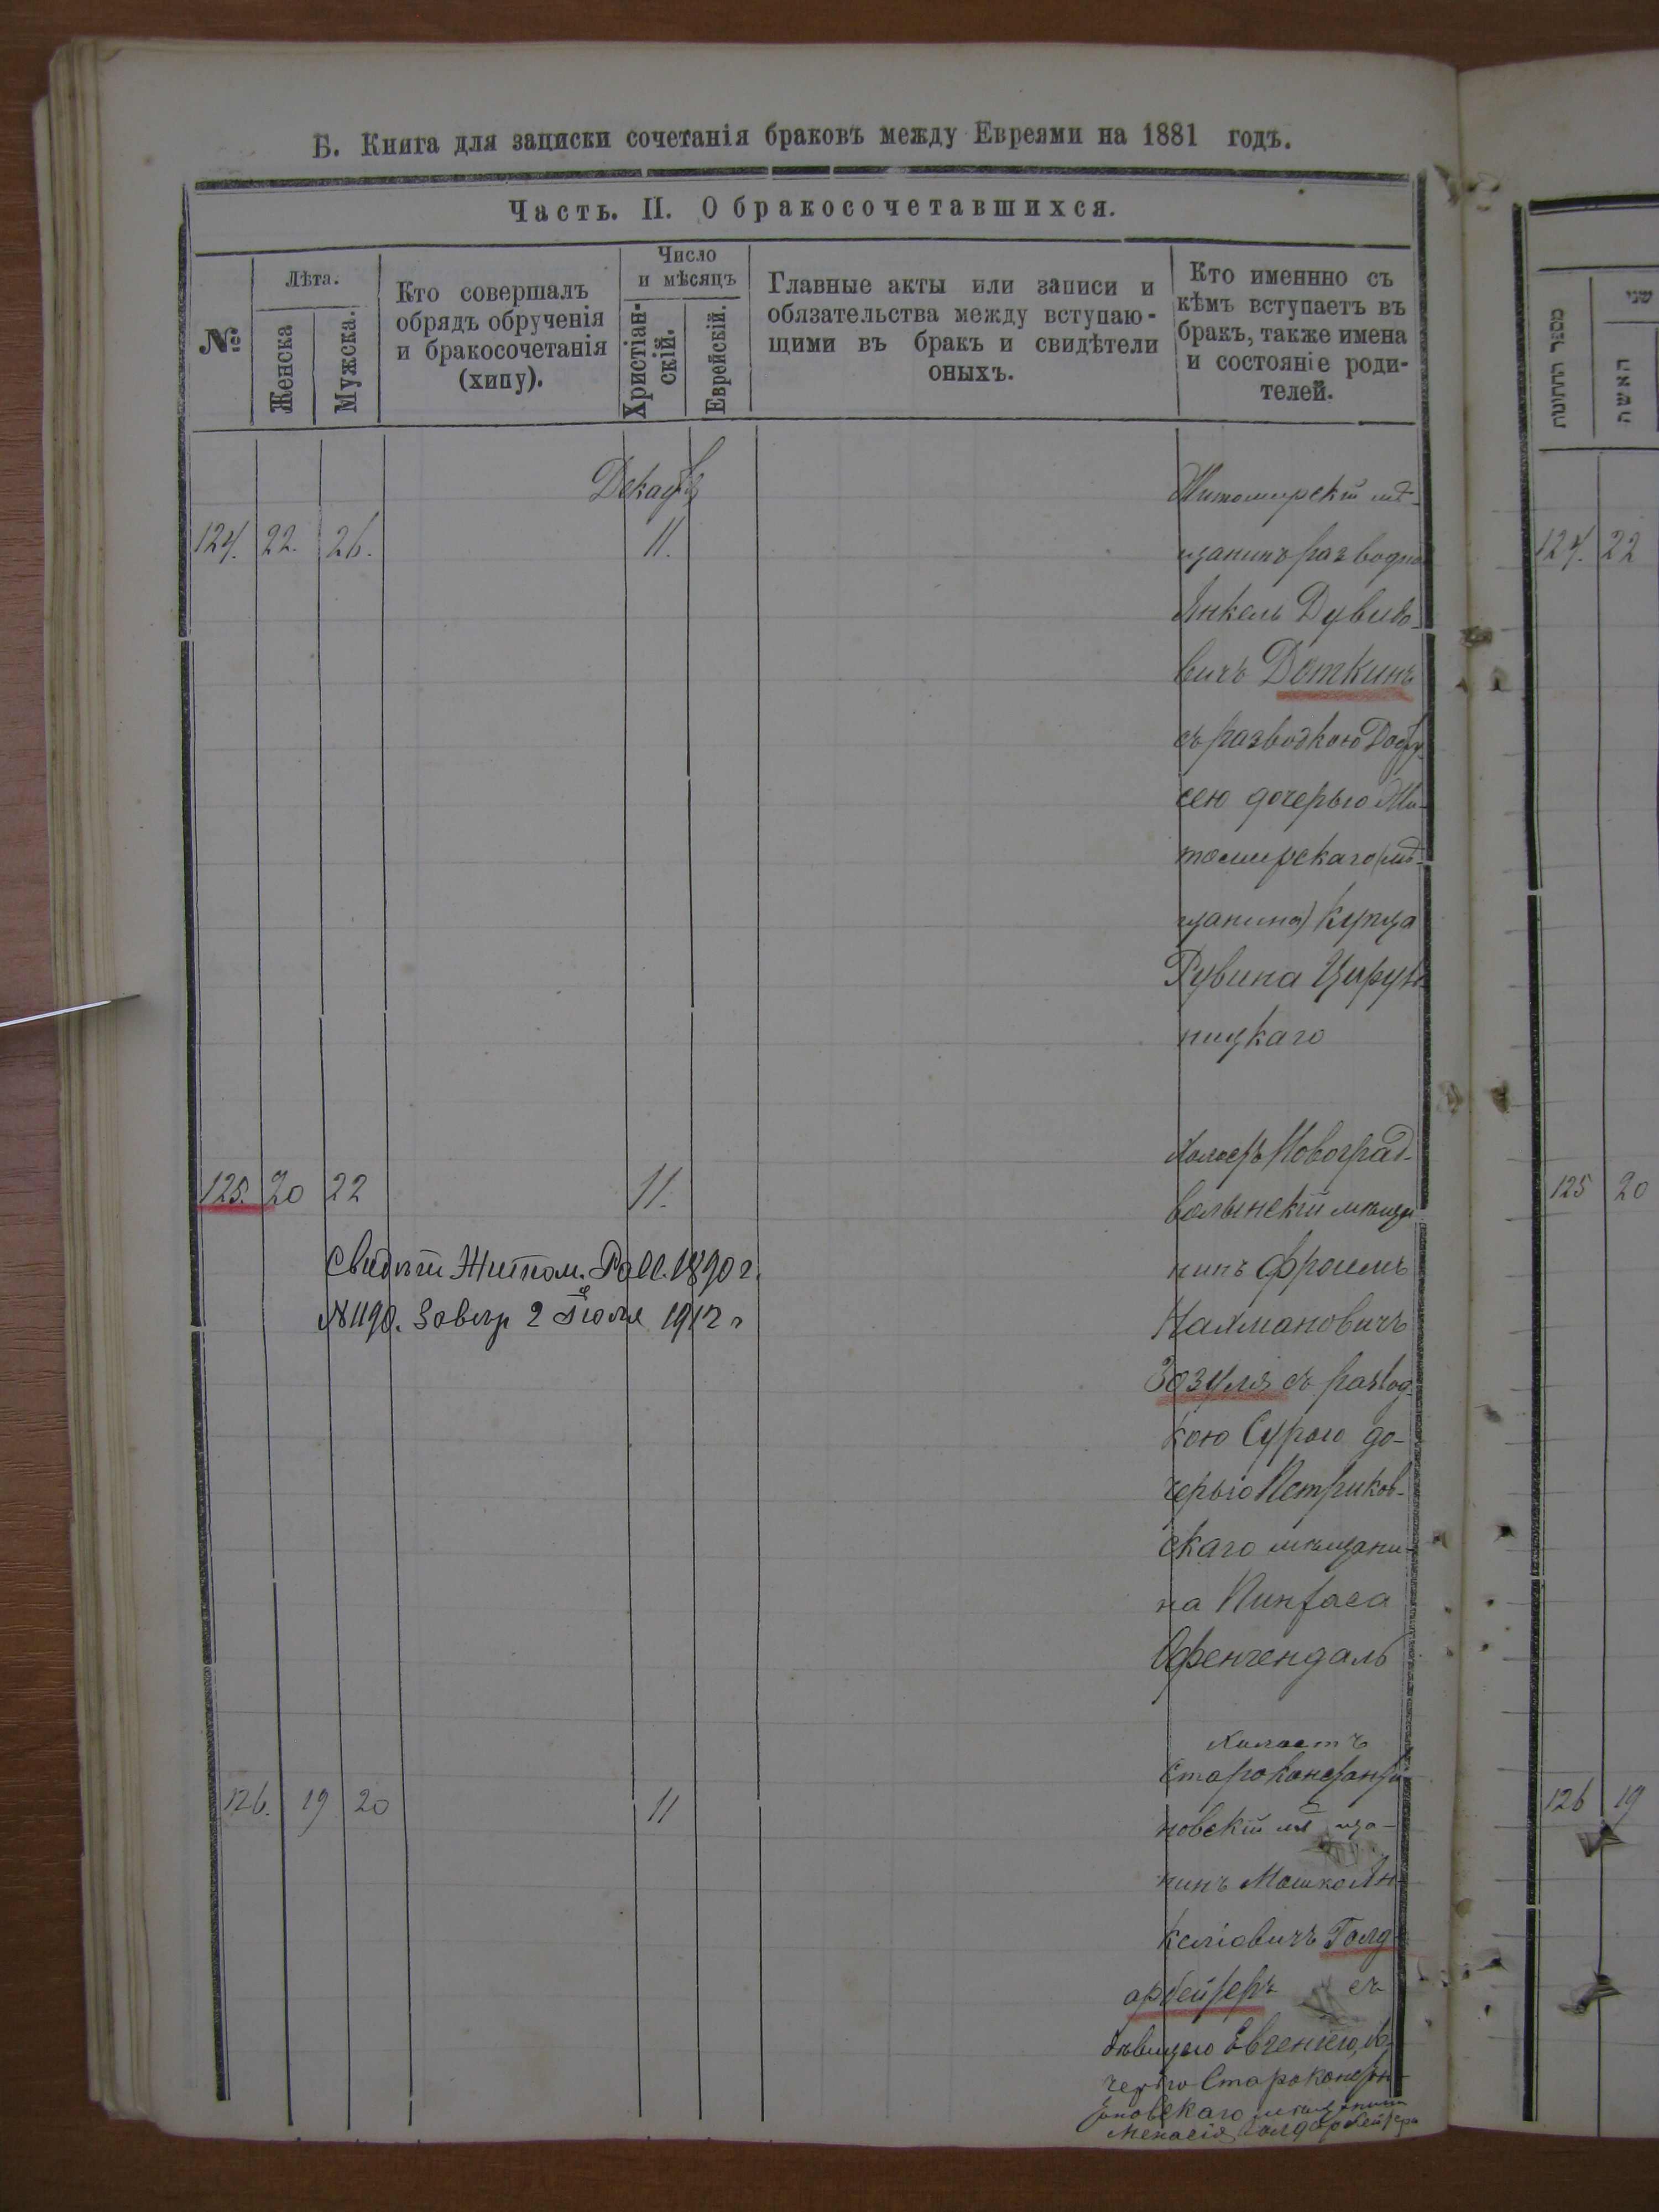 Б. Книга для записки сочетанія браковъ между Евреями на 1881 годъ.
Часть. II. О бракосочетавшихся.
№
Лѣта.
Женска
Мужска.
Кто совершалъ
обрядъ обрученія
и бракосочетанія
(хипу).
Число
и мѣсяцъ
Христіан-
скій.
Еврейскій.
Главные акты или записи и
обязательства между вступаю-
щими въ бракъ и свидѣтели
оныхъ.
Кто именнно съ
кѣмъ вступаетъ въ
бракъ, также имена
и состояніе роди-
телей.
מספר החתונות
שני
האשה
Декабрь
124. 22. 26. 11.
Житомирскій мѣ-
щанинъ разводно
Янкель Дувидо-
вичъ Доткинъ
съ разводкою
сею дочерью Жи-
томирскаго (мѣ-
щанина) купца
Рувина Цирул-
ницкаго
124. 22
125. 20 22 11.
Холостъ Новоград-
волынскій мѣща
нинъ Фроимъ
Нахмановичъ
Зозуля съ развод-
кою Сурою до-
черью Петриков-
скаго мѣщани-
на Пинхаса
Офенгендаль
Свидѣт Житом. 1890 г.
№ 1190. Завѣр 2 Іюля 1912 г
125 20
126. 19 20 11
Холостъ
Староконстанти
новскій мѣща-
нинъ Мошко Ян-
келіовичъ Голд-
арбейтеръ съ
дѣвицею Евгеніею, до
черью Староконстан-
тиновскаго мѣщанина
Менасія Голдарбейтера
126 19